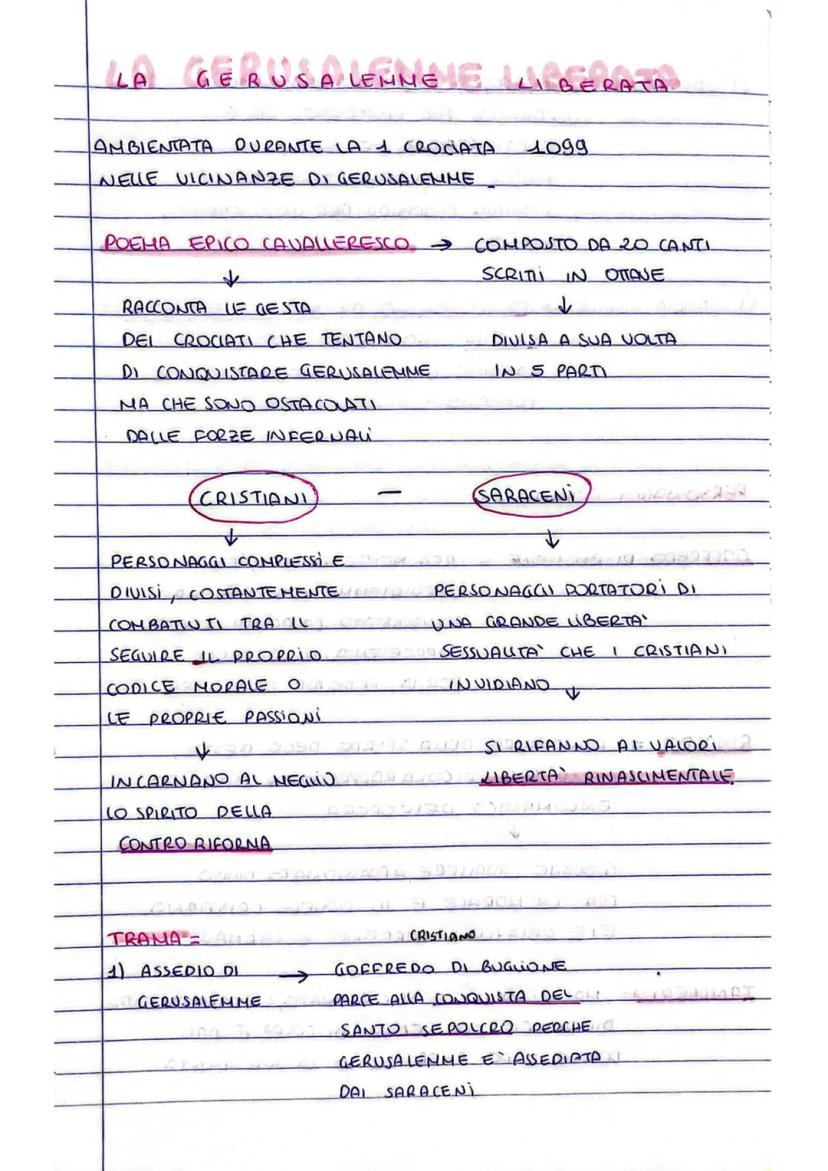 LA GERUSALEMME LIBERATA
AMBIENTATA DURANTE LA 1 CROCIATA 1099
NELLE VICINANZE DI GERUSALEMME
POEMA EPICO CAVALLERESCO → COMPOSTO DA 20 CANTI
↓ SCRITTI IN OTTAVE
RACCONTA LE GESTA ↓
DEI CROCIATI CHE TENTANO DIVISA A SUA VOLTA
DI CONQUISTARE GERUSALEMME IN 5 PARTI
MA CHE SONO OSTACOLATI
DALLE FORZE INFERNALI
CRISTIANI – SARACENI
↓ ↓
PERSONAGGI COMPLESSI E
DIVISI, COSTANTEMENTE PERSONAGGI PORTATORI DI
COMBATTUTI TRA IL UNA GRANDE LIBERTA'
SEGUIRE IL PROPRIO SESSUALITA' CHE I CRISTIANI
CODICE MORALE O INVIDIANO ↓
LE PROPRIE PASSIONI
↓ SI RIFANNO AI VALORI
INCARNANO AL MEGLIO LIBERTA' RINASCIMENTALE
LO SPIRITO DELLA
CONTRO RIFORMA
TRAMA = CRISTIANO
1) ASSEDIO DI → GOFFREDO DI BUGLIONE
GERUSALEMME PARTE ALLA CONQUISTA DEL
SANTO SEPOLCRO PERCHE
GERUSALEMME E' ASSEDIATA
DAI SARACENI